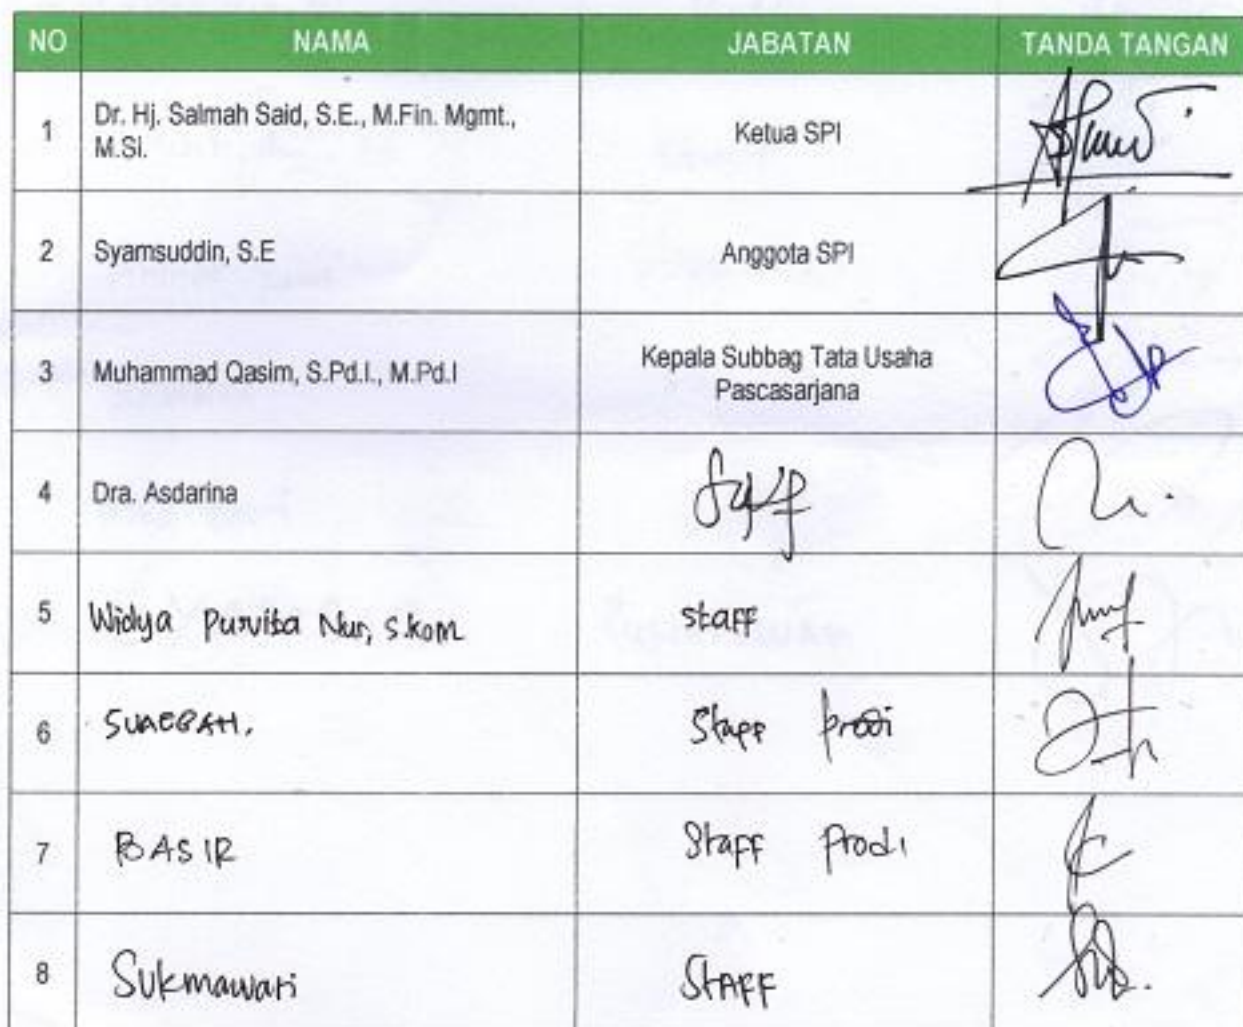 NO NAMA JABATAN TANDA TANGAN
1 Dr. Hj. Salmah Said, S.E., M.Fin. Mgmt., Ketua SPI
M.Si.
2 Syamsuddin, S.E Anggota SPI
3 Muhammad Qasim, S.Pd.I., M.Pd.I Kepala Subbag Tata Usaha
Pascasarjana
4 Dra. Asdarina
5 Widya Purvita Nur, S.kom staff
6 Staff prodi
7 BASIR Staff Prodi
8 Sukmawati STAFF